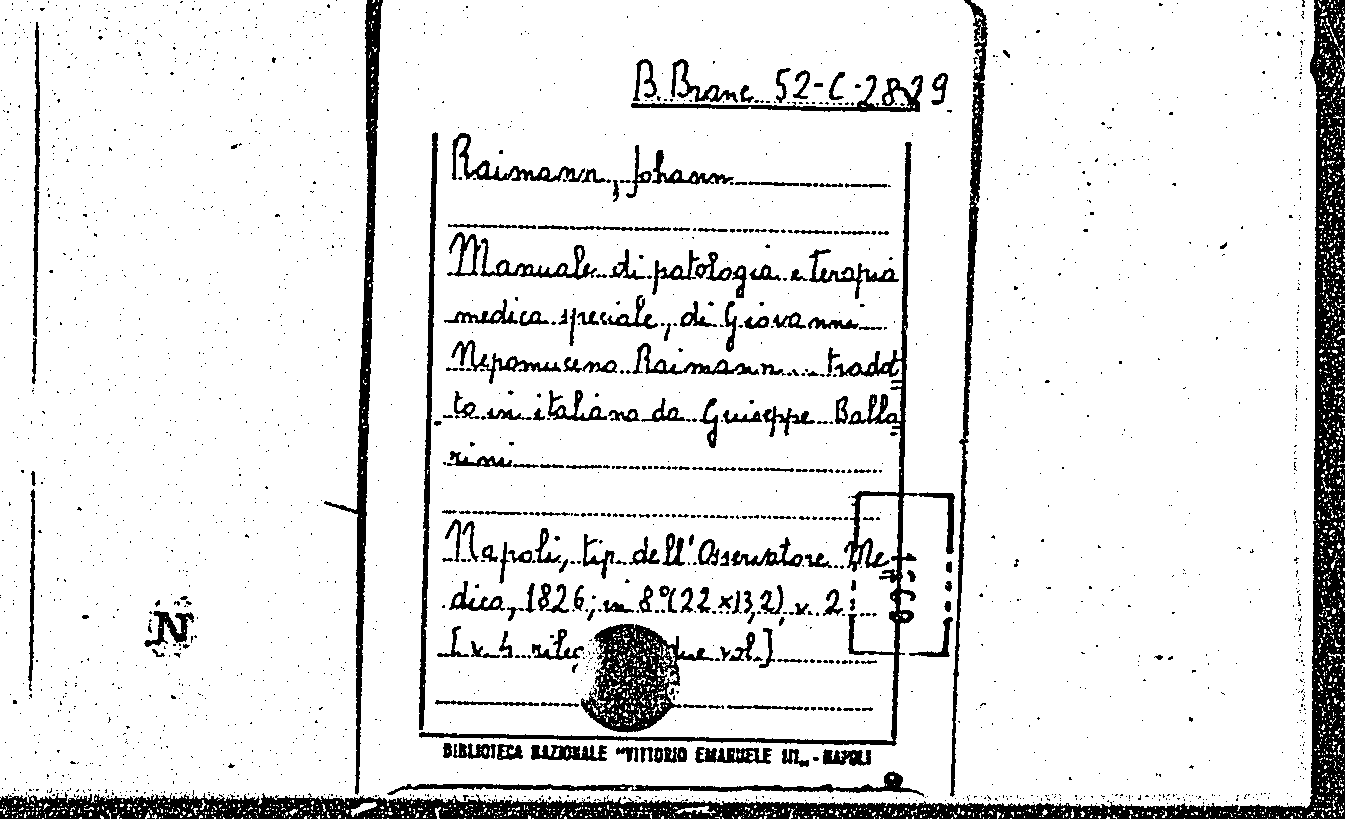 B. Branc. 52-C-28-29
Raimann, Johann
Manuale di patologia e terapia
medica speciale, di Giovanni
Nepomuceno Raimann... tradot
to in italiano da Giuseppe Balla
rini
Napoli, tip dell'Osservatore Me
dico, 1826; in 8º (22 x 13,2), v. 2
[v. 4 due vol.]
BIBLIOTECA NAZIONALE "VITTORIO EMANUELE III„ - NAPOLI
N